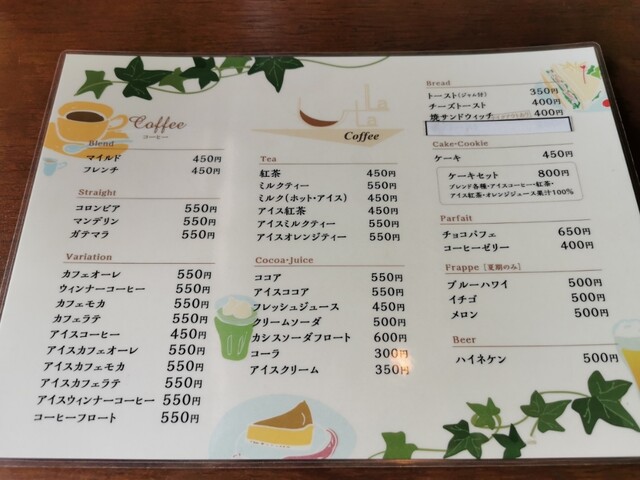 Coffee
コーヒー
Blend
マイルド 450円
フレンチ 450円
Straight
コロンビア 550円
マンデリン 550円
ガテマラ 550円
Variation
カフェオーレ 550円
ウィンナーコーヒー 550円
カフェモカ 550円
カフェラテ 550円
アイスコーヒー 450円
アイスカフェオーレ 550円
アイスカフェモカ 550円
アイスカフェラテ 550円
アイスウィンナーコーヒー 550円
コーヒーフロート 550円
Coffee
Tea
紅茶 450円
ミルクティー 550円
ミルク(ホット・アイス) 450円
アイス紅茶 450円
アイスミルクティー 550円
アイスオレンジティー 550円
Cocoa・Juice
ココア 550円
アイスココア 550円
フレッシュジュース 450円
クリームソーダ 500円
カシスソーダフロート 600円
コーラ 300円
アイスクリーム 350円
Bread
トースト(ジャム付) 350円
チーズトースト 400円
焼サンドウィッチ 400円
Cake・Cookie
ケーキ 450円
ケーキセット 800円
ブレンド各種・アイスコーヒー・紅茶・
アイス紅茶・オレンジジュース果汁100%
Parfait
チョコパフェ 650円
コーヒーゼリー 400円
Frappe [夏期のみ]
ブルーハワイ 500円
イチゴ 500円
メロン 500円
Beer
ハイネケン 500円